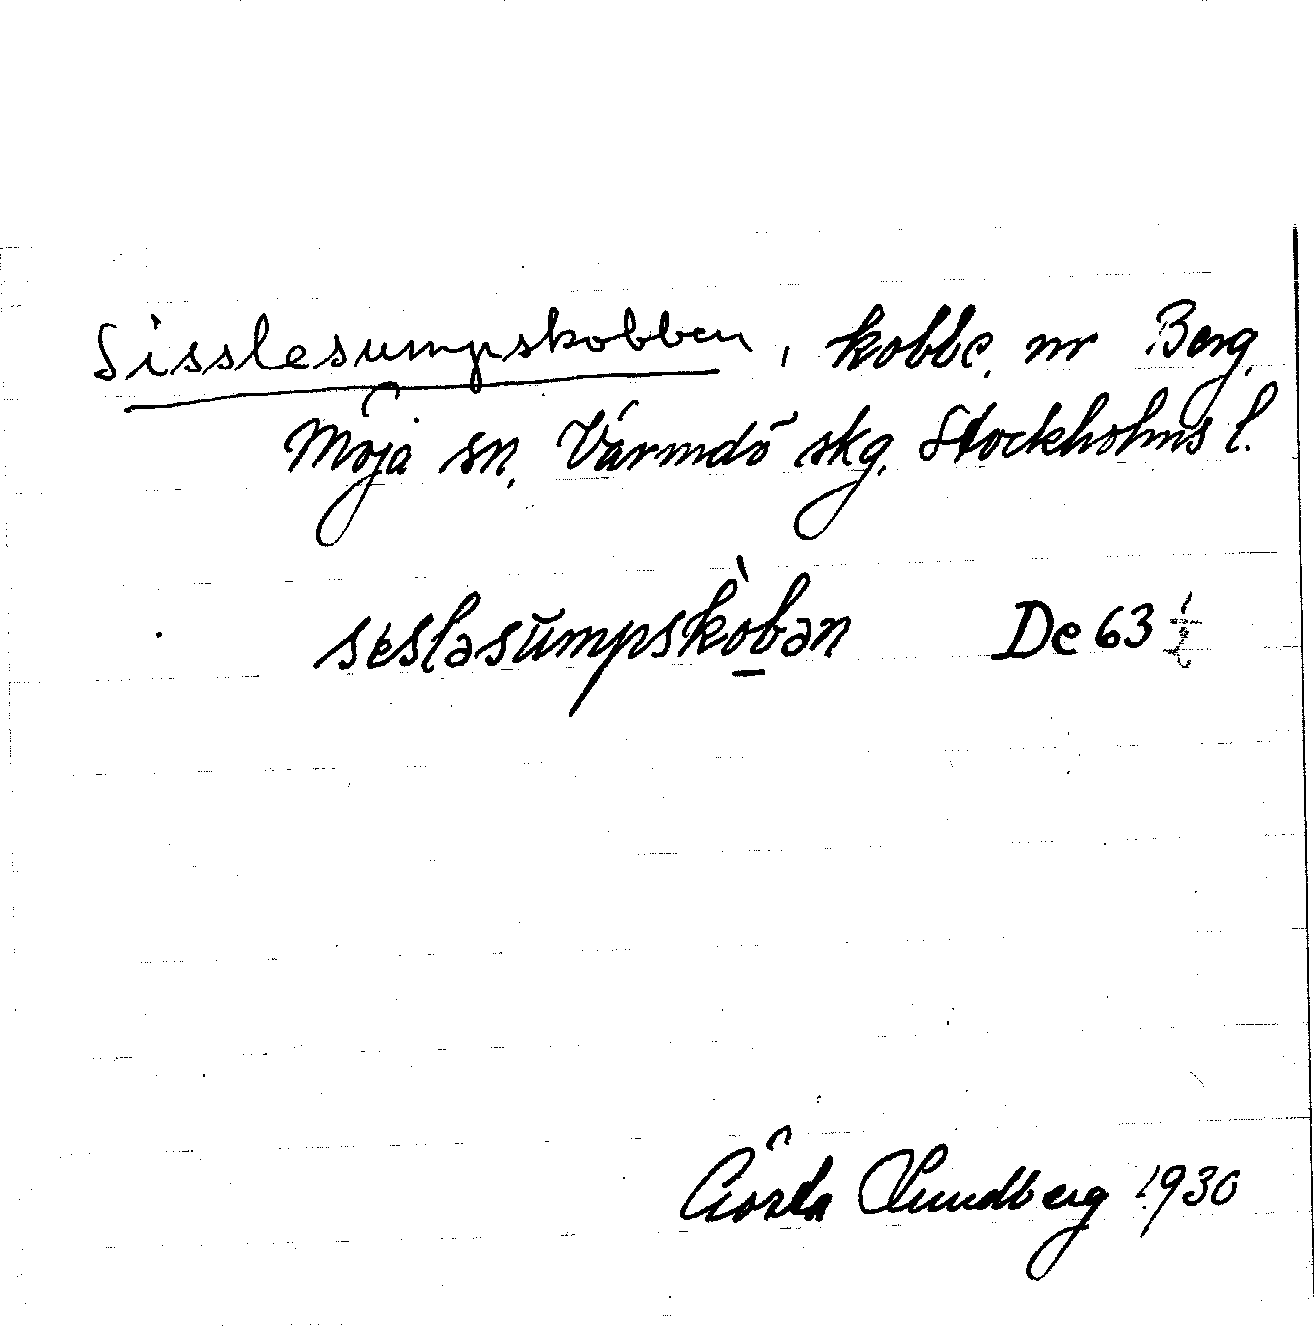 Sisslesumpskobben, kobbe, nr Berg,
Möja sn, Värmdö skg. Stockholms l.
seslasumpskòban De 63 ½
Gösta Lundberg 1930